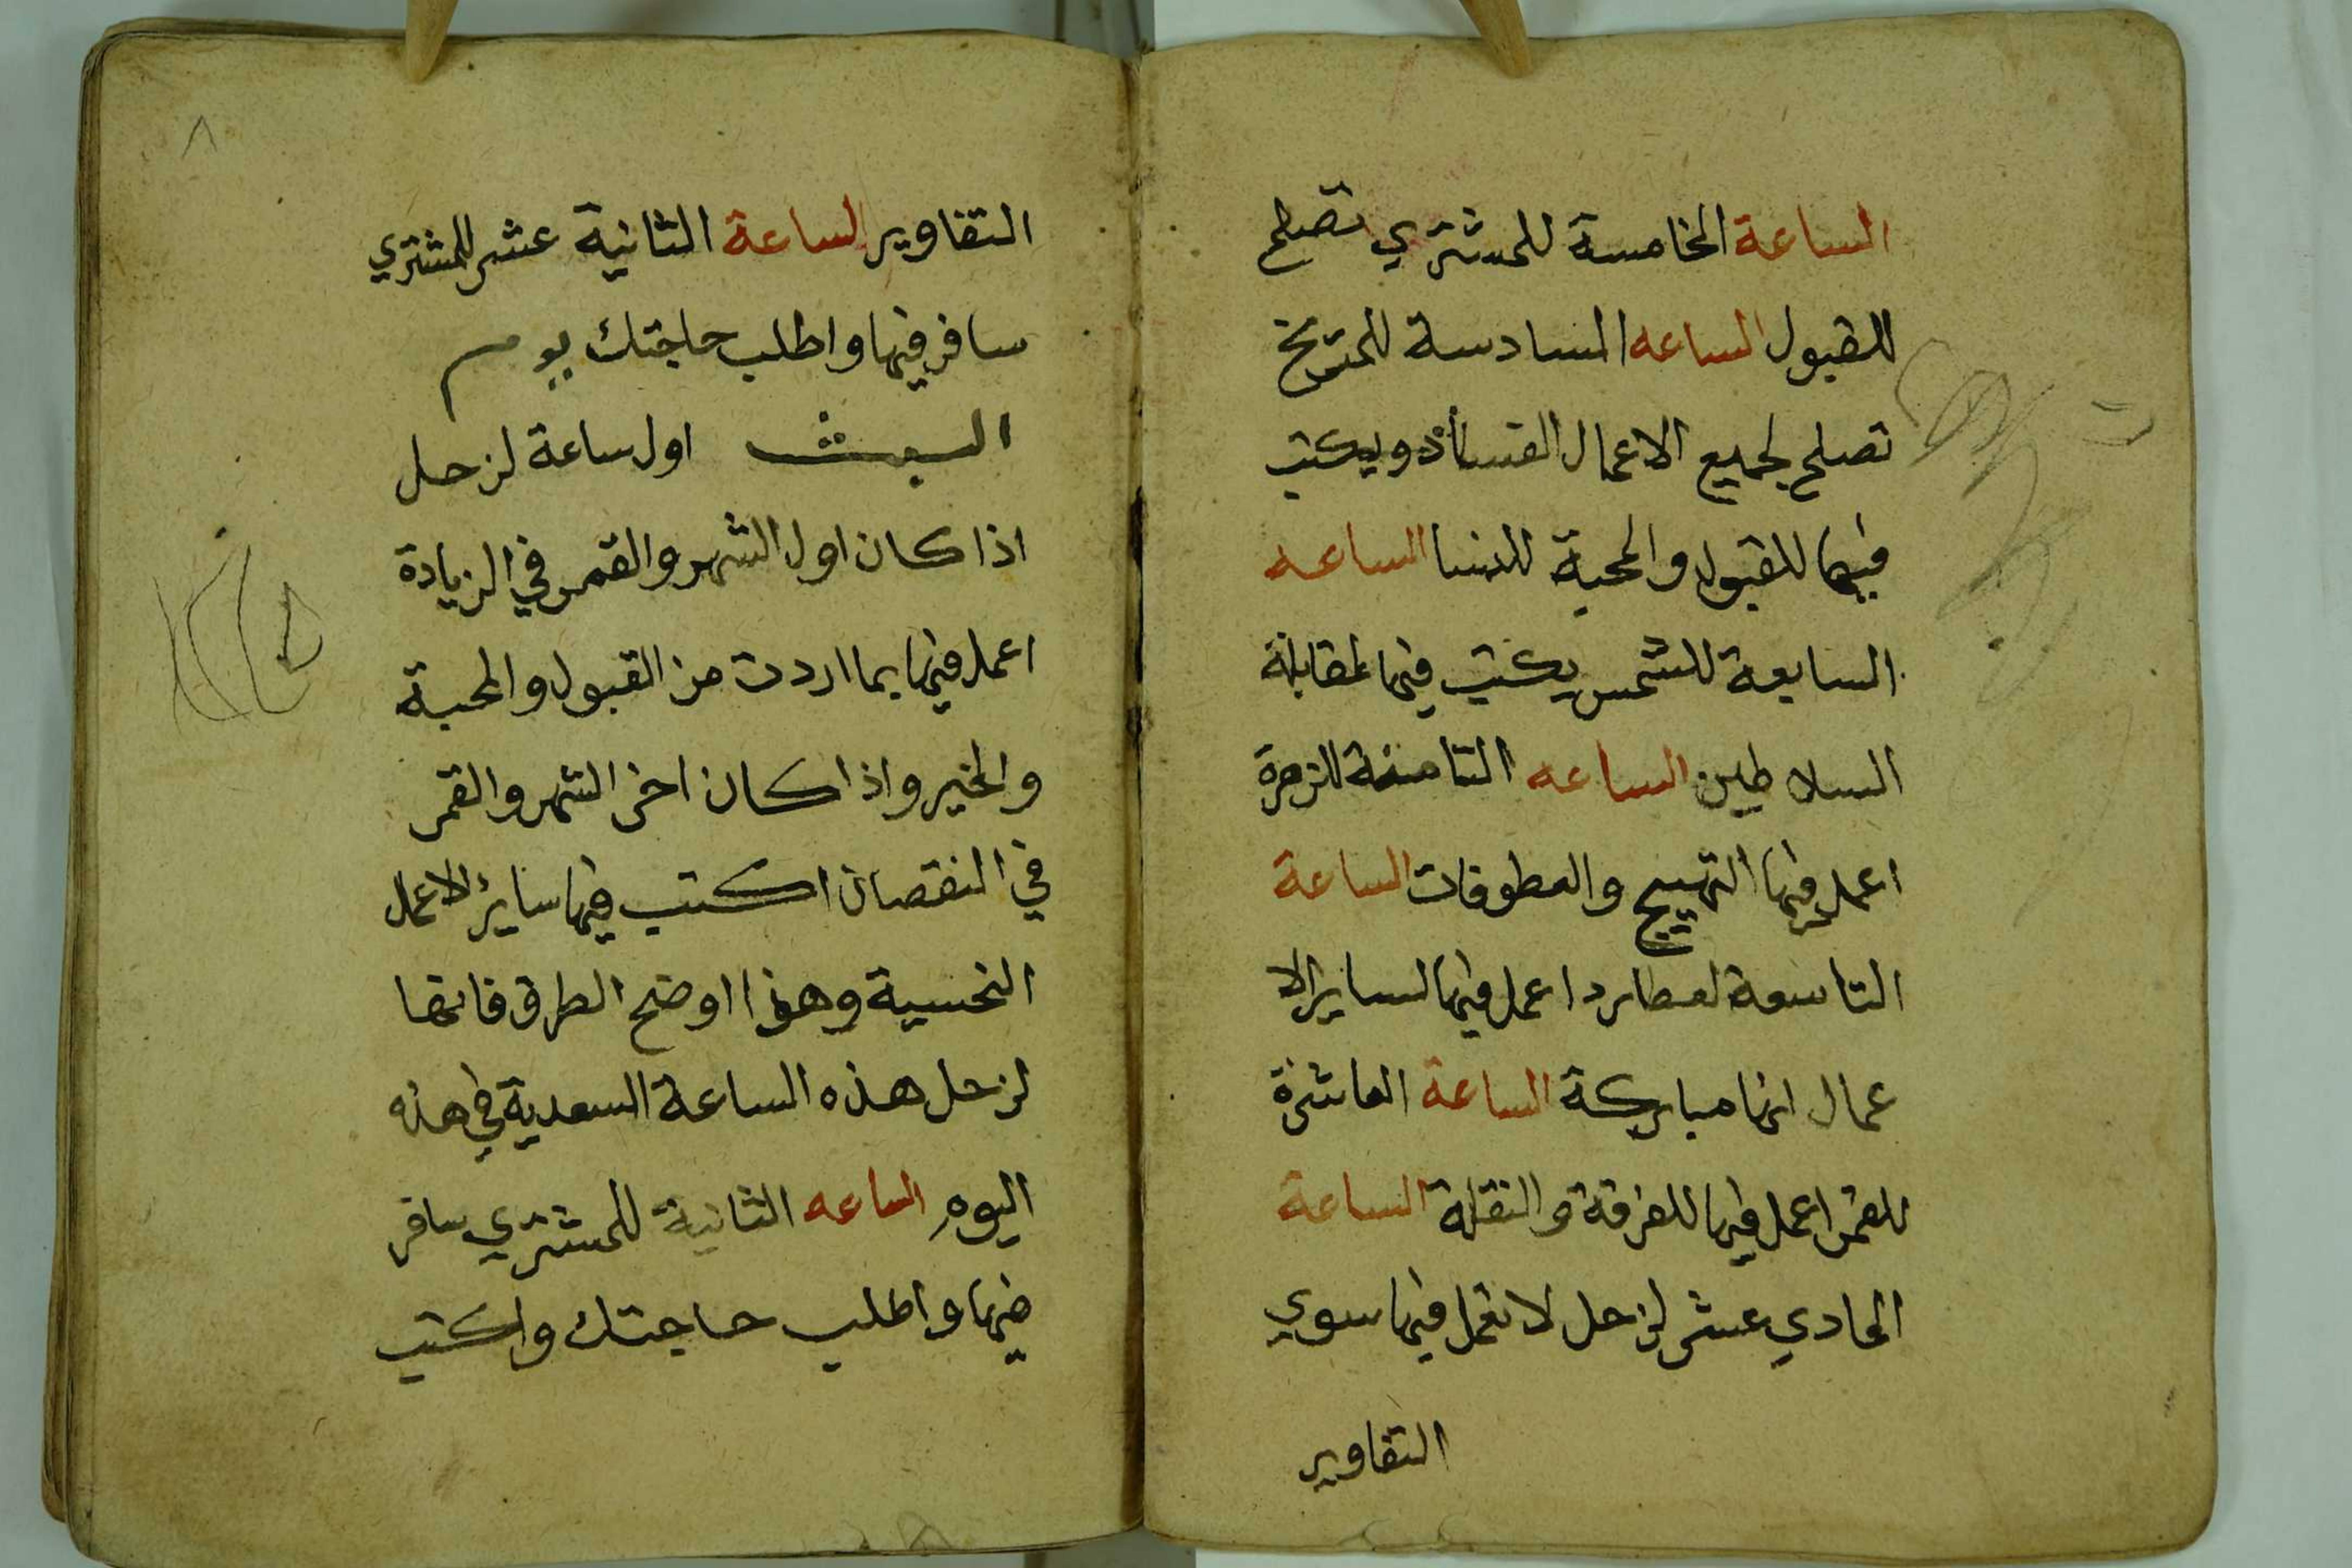 الساعة الخامسة للمشتري تصلح
للقبول الساعه السادسة للمريخ
تصلح لجميع الاعمال ويكتب
فيها للقبول والمحبة للنسا الساعه
السابعة للشمس يكتب فيها لمقابلة
السلاطين الساعه الثامنة للزهرة
اعمل فيها التهييج والعطوفات الساعة
التاسعة لعطارد اعمل فيها لساير الا
عمال انها مباركة الساعة العاشرة
للقمر اعمل فيها للفرقة والنقلة الساعة
الحادي عشر لزحل لا تعمل فيها سوي
التقاوير
٨
التقاوير الساعة الثانية عشر للمشتري
سافر فيها واطلب حاجتك يوم
السبت اول ساعة لزحل
اذا كان اول الشهر والقمر في الزيادة
اعمل فيها بما اردت من القبول والمحبة
والخير واذا كان اخر الشهر والقمر
في النقصان اكتب فيها ساير الاعمال
النحسية وهذا اوضح الطرق فانها
لزحل هذه الساعة السعدية في هذه
اليوم الساعه الثانية للمشتري سافر
فيها واطلب حاجتك واكتب